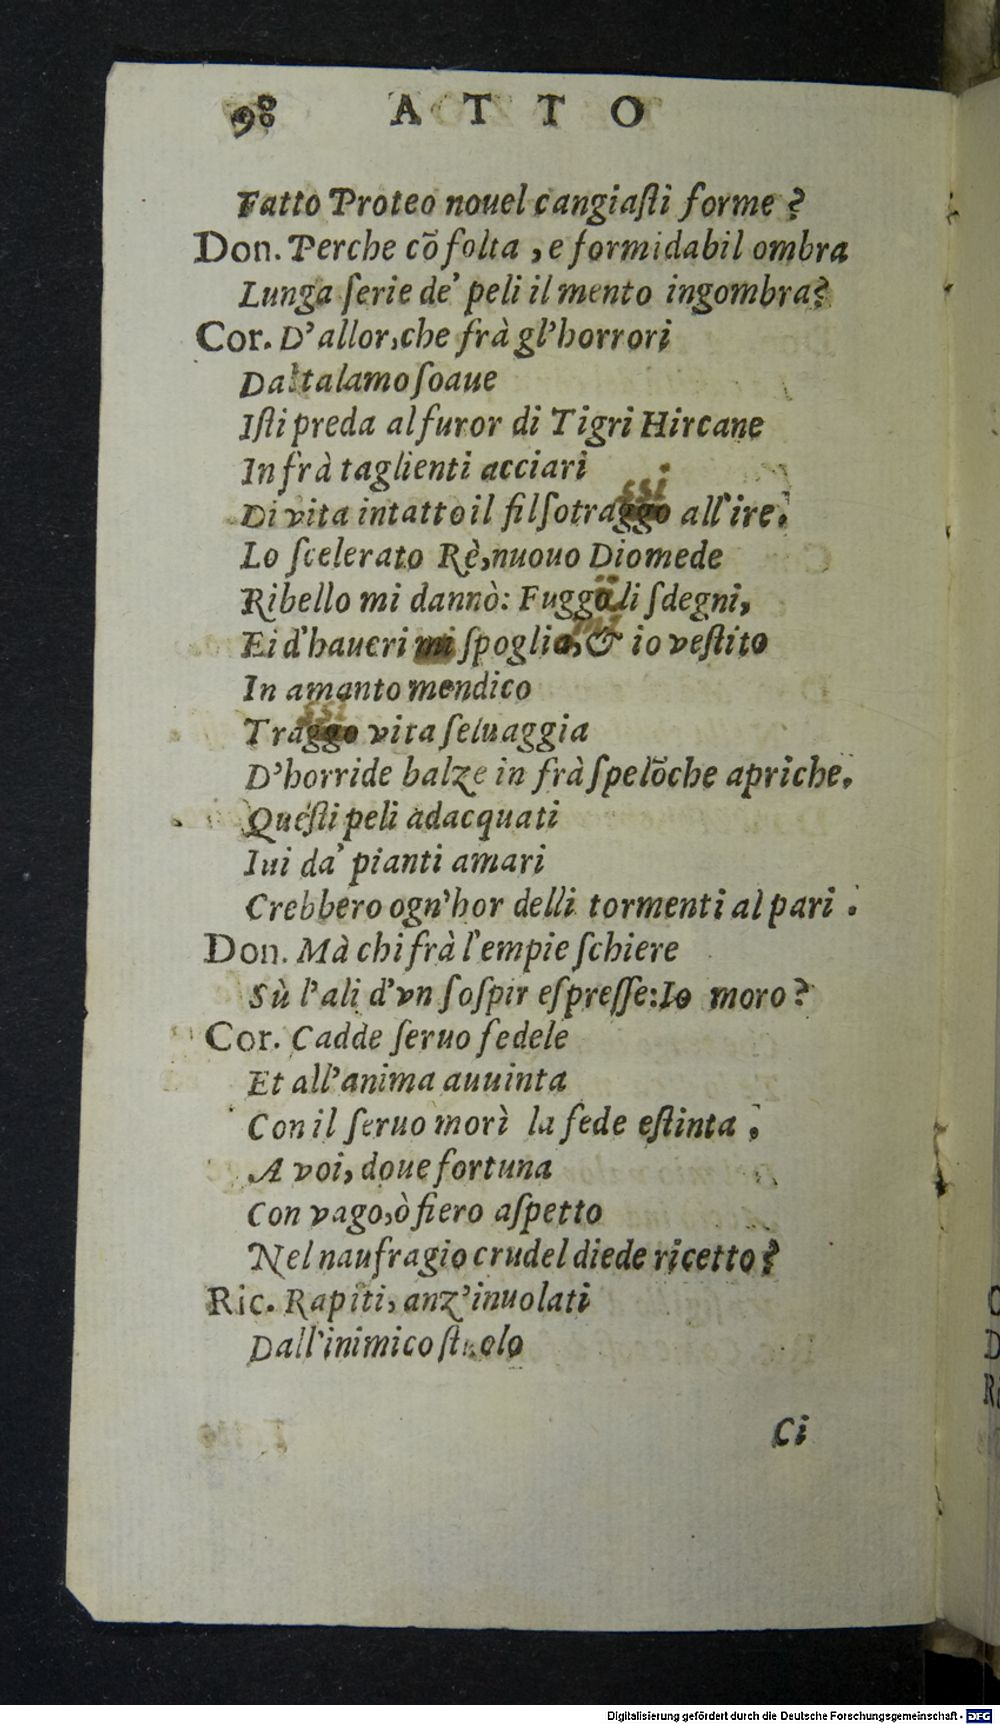 98 ATTO
Fatto Proteo nouel cangiaſti forme?
Don. Perche cõ folta, e formidabil ombra
Lunga ſerie de' peli il mento ingombra?
Cor. D'allor, che frà gl'horrori
Dal talamo ſoaue
Iſti preda al furor di Tigri Hircane
In frà taglienti acciari
ssi
Di vita intatto il fil ſotraggo all'ire.
Lo ſcelerato Rè, nuouo Diomede
Ribello mi dannò: Fuggo li ſdegni,
Ei d'haueri mi ſpoglia, & io veſtito
In amanto mendico
ssi
Traggo vita ſeluaggia
D'horride balze in frà ſpelõche apriche.
Queſti peli adacquati
Iui da' pianti amari
Crebbero ogn'hor delli tormenti al pari.
Don. Mà chi frà l'empie ſchiere
Sù l'ali d'vn ſoſpir eſpreſſe: Io moro?
Cor. Cadde ſeruo fedele
Et all'anima auuinta
Con il ſeruo morì la fede eſtinta.
A voi, doue fortuna
Con vago, ò fiero aſpetto
Nel naufragio crudel diede ricetto?
Ric. Rapiti, anz'inuolati
Dall'inimico ſtuolo
Ci
Digitalisierung gefördert durch die Deutsche Forschungsgemeinschaft - DFG